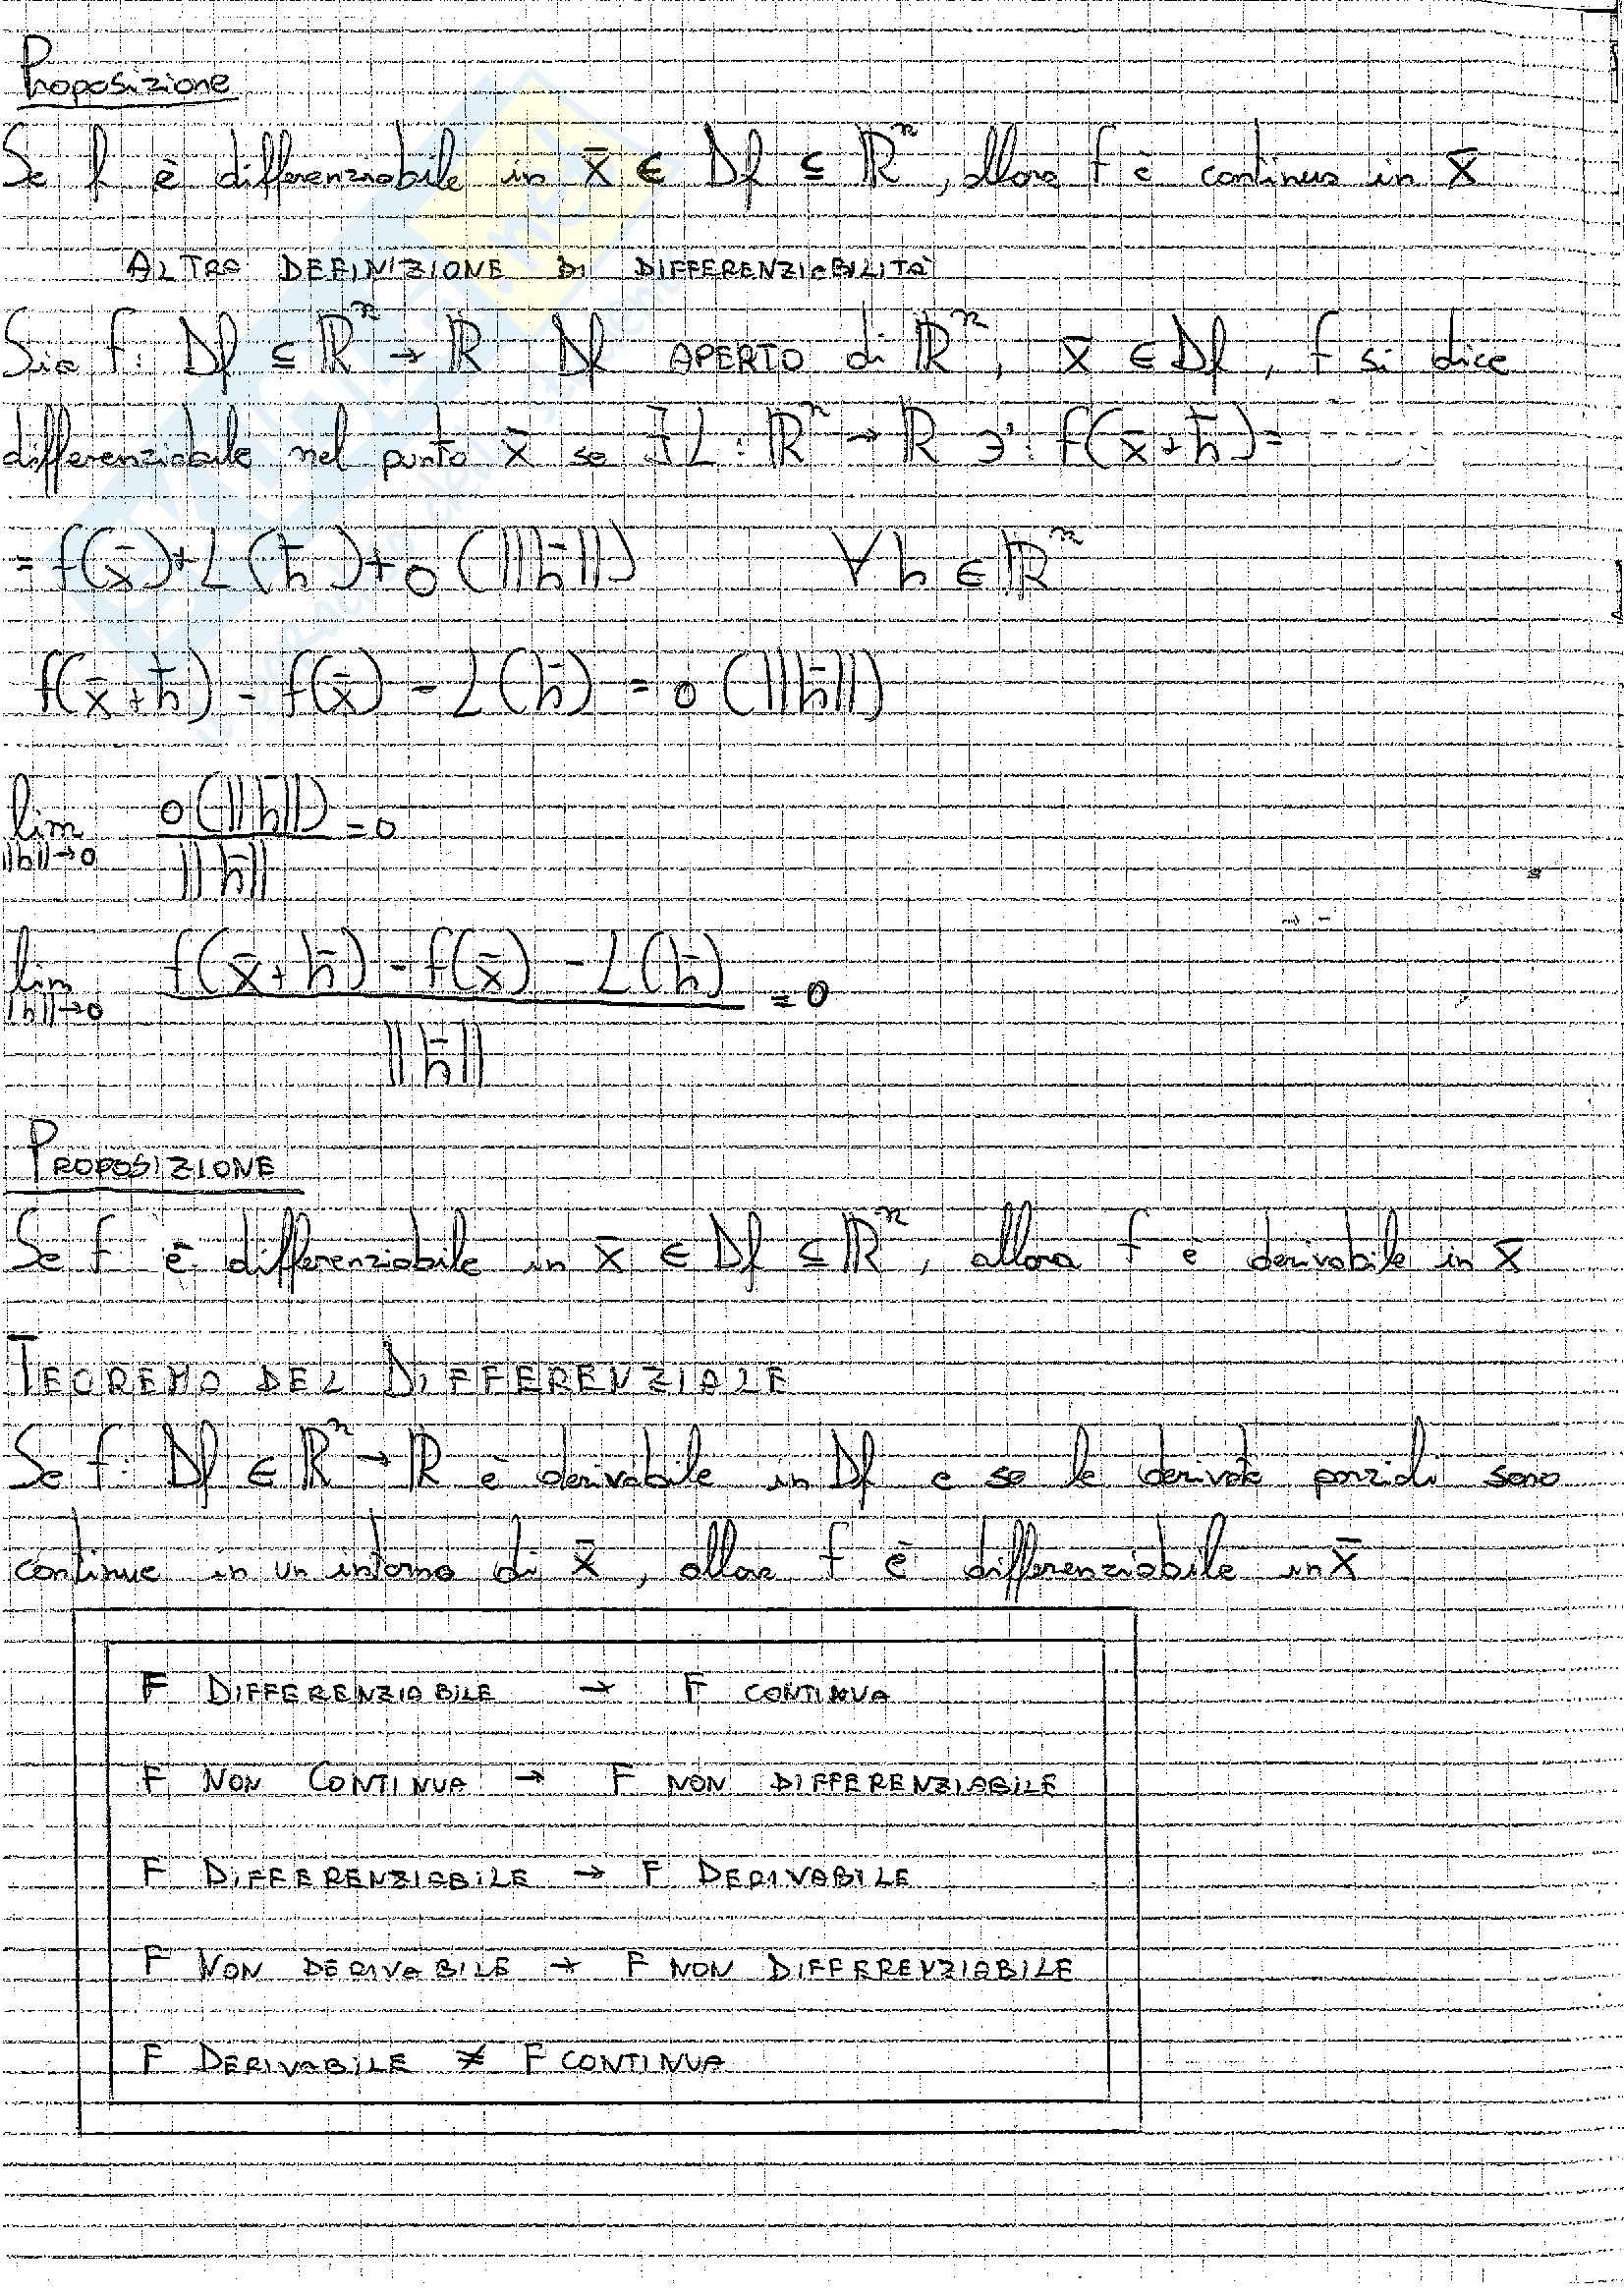 Proposizione
Se f è differenziabile in x̄ ∈ Df ⊆ ℝⁿ, allora f è continua in x̄
ALTRA DEFINIZIONE DI DIFFERENZIABILITÀ
Sia f: Df ⊆ ℝⁿ → ℝ Df APERTO di ℝⁿ, x̄ ∈ Df, f si dice
differenziabile nel punto x̄ se ∃ L: ℝⁿ → ℝ ∋': f(x̄+h̄)=
= f(x̄)+L(h̄)+o(||h̄||) ∀ h ∈ ℝⁿ
f(x̄+h̄) - f(x̄) - L(h̄) = o(||h̄||)
lim ||h||→0 o(||h̄||) / ||h̄|| = 0
lim ||h||→0 f(x̄+h̄) - f(x̄) - L(h̄) / ||h̄|| = 0
PROPOSIZIONE
Se f è differenziabile in x̄ ∈ Df ⊆ ℝⁿ, allora f è derivabile in x̄
TEOREMA DEL DIFFERENZIALE
Se f: Df ∈ ℝⁿ → ℝ è derivabile in Df e se le derivate parziali sono
continue in un intorno di x̄, allora f è differenziabile in x̄
F DIFFERENZIABILE → F CONTINUA
F NON CONTINUA → F NON DIFFERENZIABILE
F DIFFERENZIABILE → F DERIVABILE
F NON DERIVABILE → F NON DIFFERENZIABILE
F DERIVABILE ↛ F CONTINUA